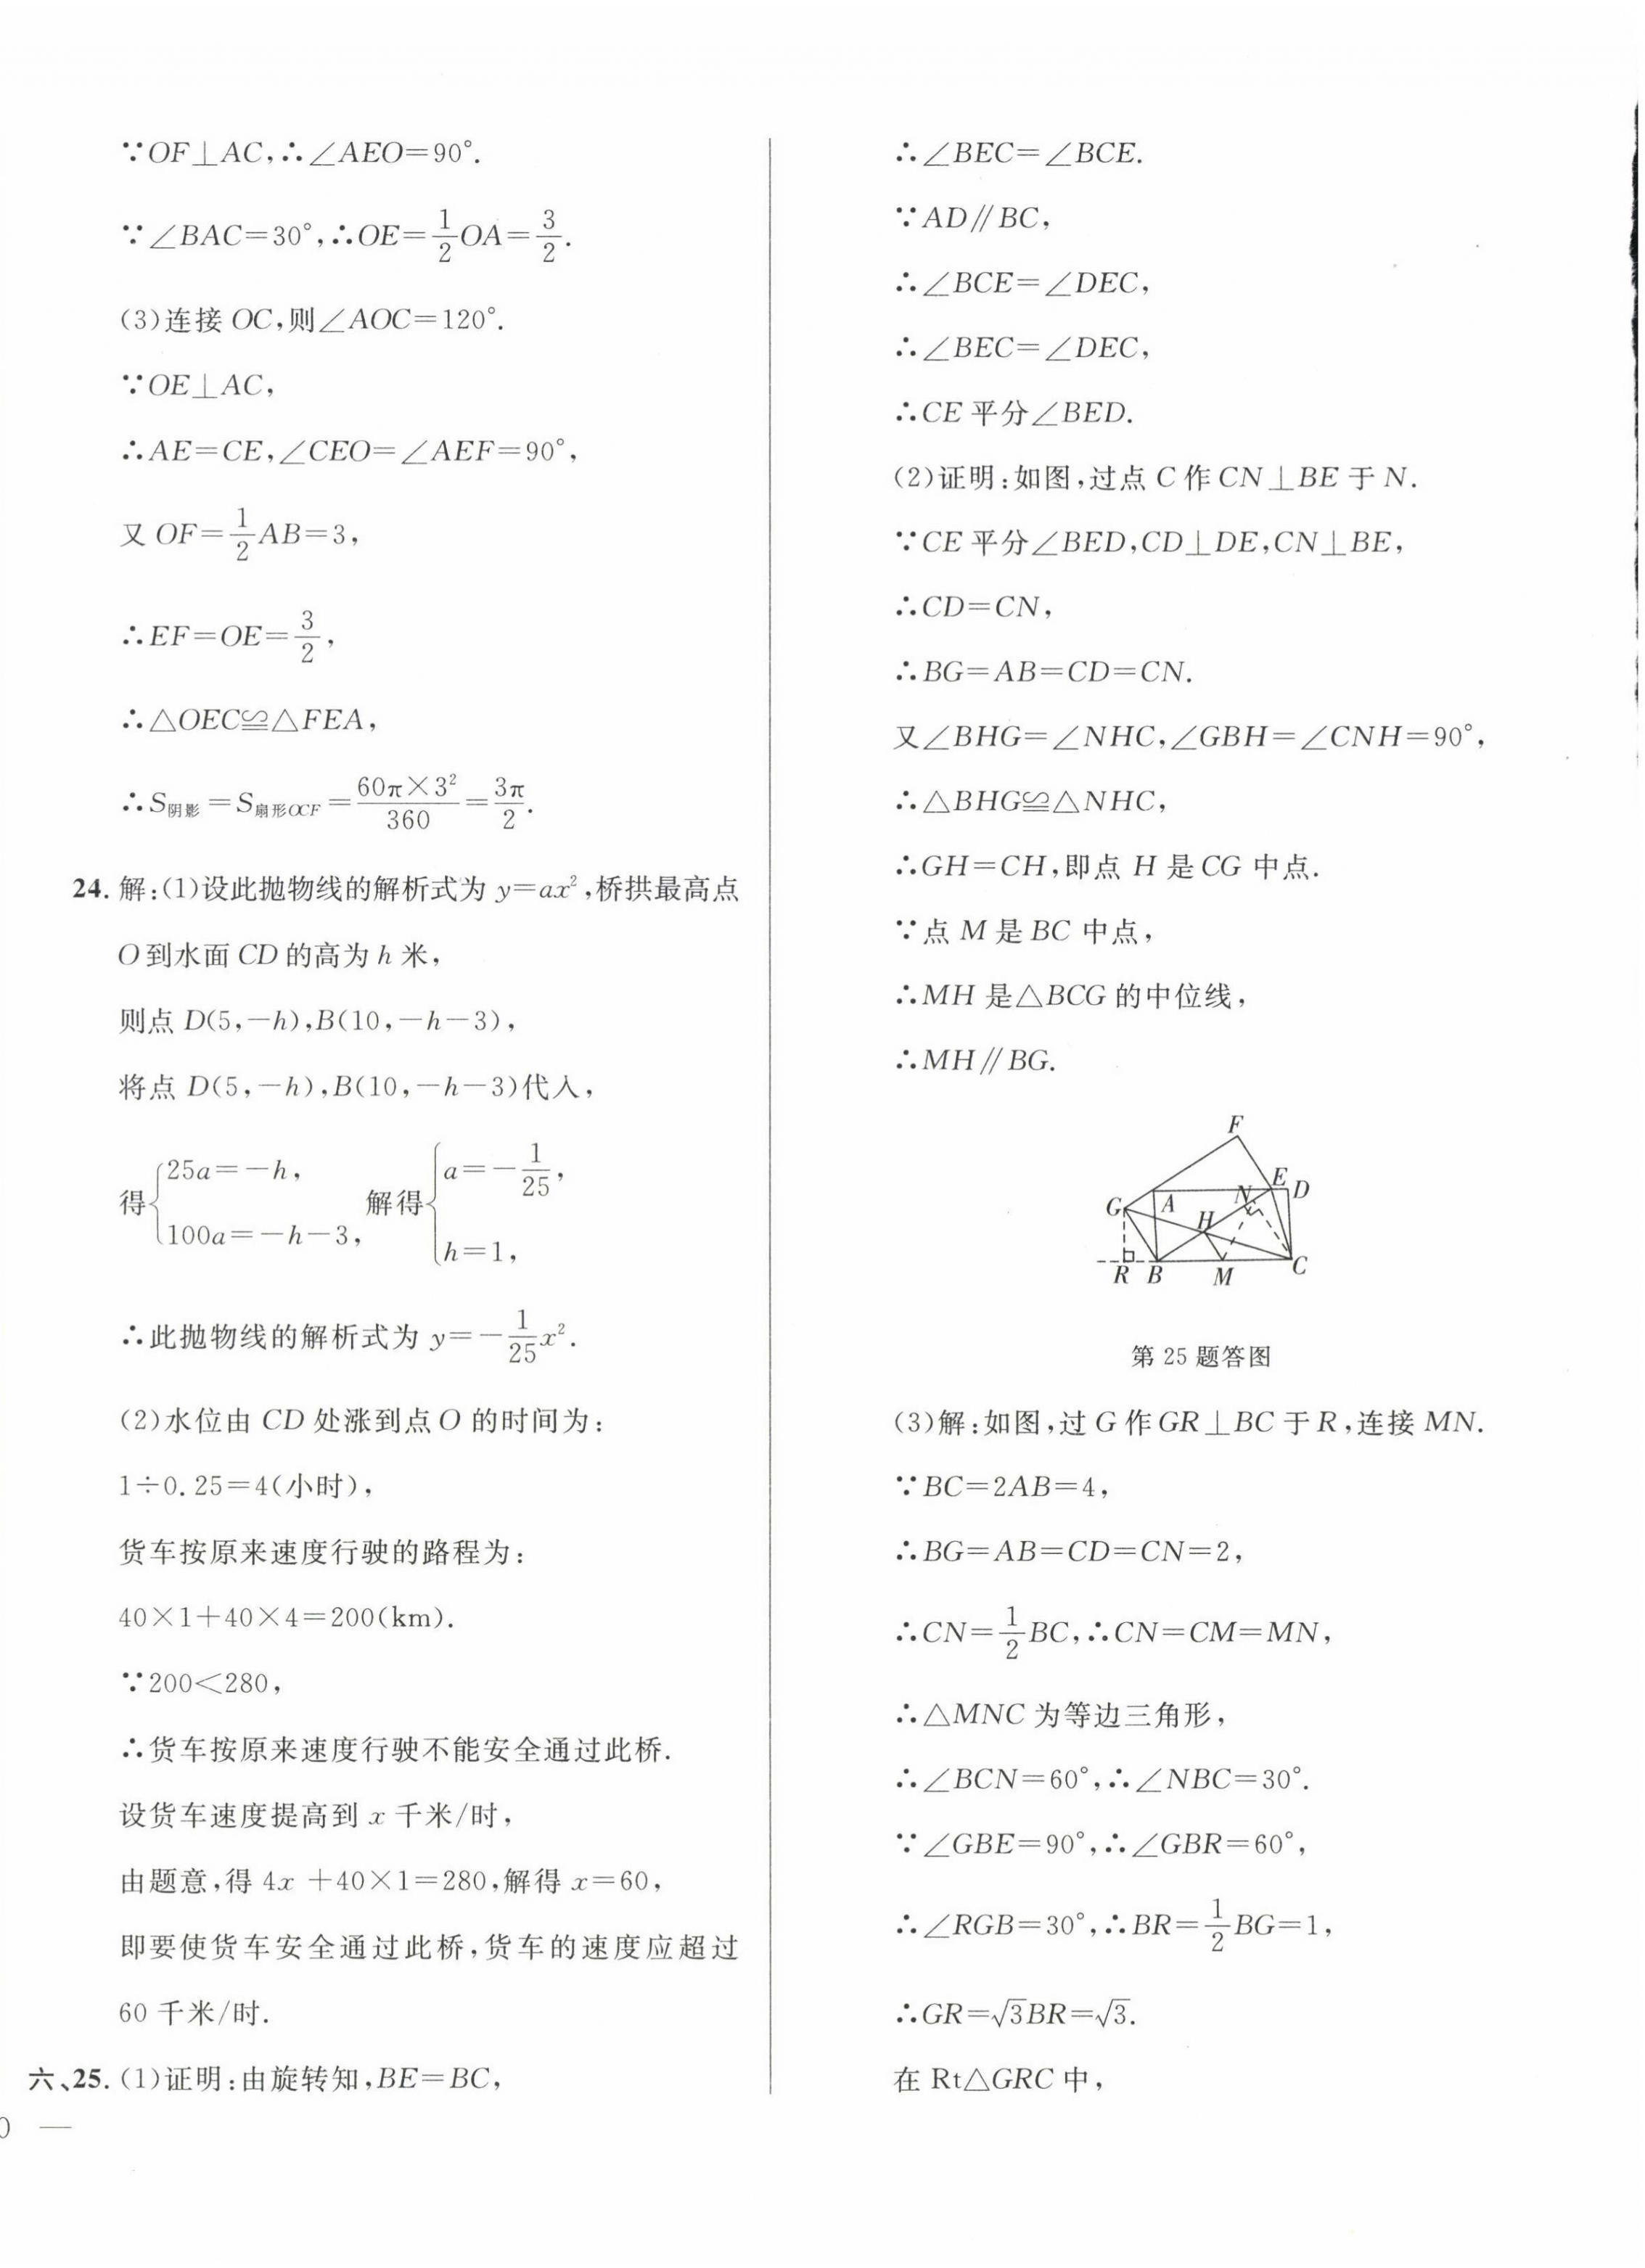 ∵OF⊥AC,∴∠AEO=90°.
∵∠BAC=30°,∴OE=1/2OA=3/2.
(3)连接 OC,则∠AOC=120°.
∵OE⊥AC,
∴AE=CE,∠CEO=∠AEF=90°,
又 OF=1/2AB=3,
∴EF=OE=3/2,
∴△OEC≌△FEA,
∴S阴影=S扇形OCF=60π×3²/360=3π/2.
24. 解:(1)设此抛物线的解析式为 y=ax²,桥拱最高点
O到水面 CD 的高为 h 米,
则点 D(5,-h),B(10,-h-3),
将点 D(5,-h),B(10,-h-3)代入,
得{25a=-h, 100a=-h-3, 解得{a=-1/25, h=1,
∴此抛物线的解析式为 y=-1/25x².
(2)水位由 CD 处涨到点 O 的时间为:
1÷0.25=4(小时),
货车按原来速度行驶的路程为:
40×1+40×4=200(km).
∵200<280,
∴货车按原来速度行驶不能安全通过此桥.
设货车速度提高到 x 千米/时,
由题意,得 4x +40×1=280,解得 x=60,
即要使货车安全通过此桥,货车的速度应超过
60 千米/时.
六、25. (1)证明:由旋转知,BE=BC,
0 —
∴∠BEC=∠BCE.
∵AD∥BC,
∴∠BCE=∠DEC,
∴∠BEC=∠DEC,
∴CE 平分∠BED.
(2)证明:如图,过点 C 作 CN⊥BE 于 N.
∵CE 平分∠BED,CD⊥DE,CN⊥BE,
∴CD=CN,
∴BG=AB=CD=CN.
又∠BHG=∠NHC,∠GBH=∠CNH=90°,
∴△BHG≌△NHC,
∴GH=CH,即点 H 是 CG 中点.
∵点 M 是 BC 中点,
∴MH 是△BCG 的中位线,
∴MH∥BG.
F
E
D
N
A
G
H
R B M C
第 25 题答图
(3)解:如图,过 G 作 GR⊥BC 于 R,连接 MN.
∵BC=2AB=4,
∴BG=AB=CD=CN=2,
∴CN=1/2BC,∴CN=CM=MN,
∴△MNC 为等边三角形,
∴∠BCN=60°,∴∠NBC=30°.
∵∠GBE=90°,∴∠GBR=60°,
∴∠RGB=30°,∴BR=1/2BG=1,
∴GR=√3BR=√3.
在 Rt△GRC 中,